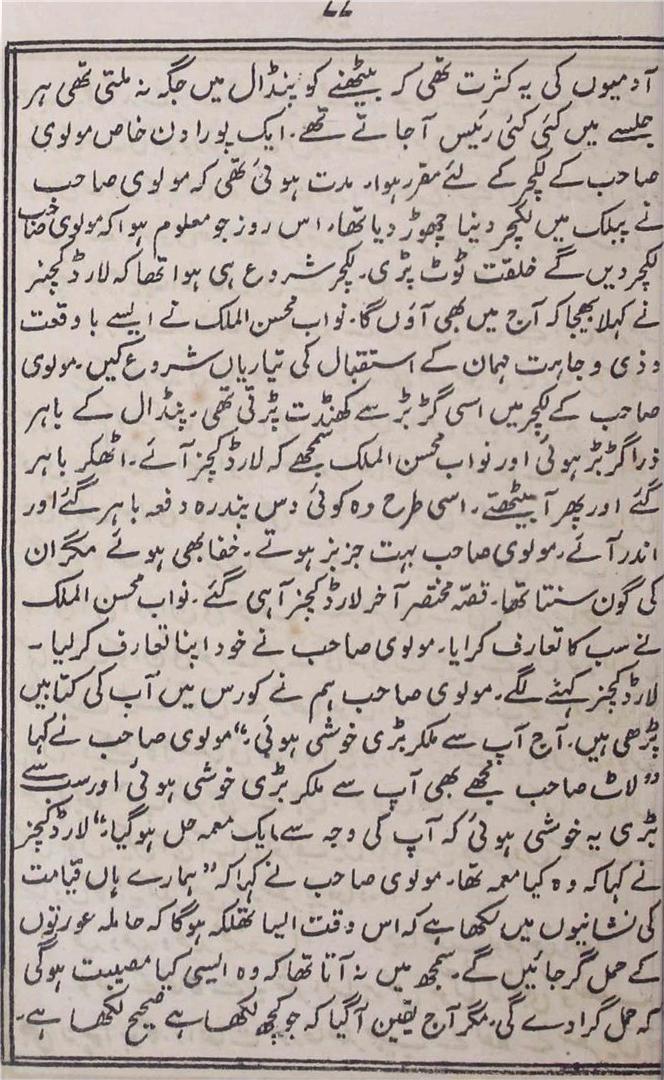 ۷۷
آدمیوں کی یہ کثرت تھی کہ بیٹھنے کو پنڈال میں جگہ نہ ملتی تھی ہر
جلسے میں کئی کئی رئیس آجاتے تھے۔ ایک پورا دن خاص مولوی
صاحب کے لکچر کے لئے مقرر ہوا۔ مدت ہوئی تھی کہ مولوی صاحب
نے پبلک میں لکچر دینا چھوڑ دیا تھا۔ اس روز جو معلوم ہوا کہ مولوی صاحب
لکچر دیں گے خلقت ٹوٹ پڑی۔ لکچر شروع ہی ہوا تھا کہ لارڈ کچنر
نے کہلا بھیجا کہ آج میں بھی آؤں گا۔ نواب محسن الملک نے ایسے با وقعت
و ذی وجاہت مہمان کے استقبال کی تیاریاں شروع کیں۔ مولوی
صاحب کے لکچر میں اسی گڑبڑ سے کھنڈت پڑتی تھی۔ پنڈال کے باہر
ذرا گڑبڑ ہوئی اور نواب محسن الملک سمجھے کہ لارڈ کچنر آئے۔ اٹھکر باہر
گئے اور پھر آ بیٹھتے۔ اسی طرح وہ کوئی دس پندرہ دفعہ باہر گئے اور
اندر آئے۔ مولوی صاحب بہت جزبز ہوتے۔ خفا بھی ہوئے مگر ان
کی کون سنتا تھا۔ قصّہ مختصر آخر لارڈ کچنر آ ہی گئے۔ نواب محسن الملک
نے سب کا تعارف کرایا۔ مولوی صاحب نے خود اپنا تعارف کرلیا۔
لارڈ کچنر کہنے لگے۔ مولوی صاحب ہم نے کورس میں آپ کی کتابیں
پڑھی ہیں۔ آج آپ سے ملکر بڑی خوشی ہوئی۔“ مولوی صاحب نے کہا
”لاٹ صاحب مجھے بھی آپ سے ملکر بڑی خوشی ہوئی اور سب سے
بڑی یہ خوشی ہوئی کہ آپ کی وجہ سے ایک معمہ حل ہوگیا۔“ لارڈ کچنر
نے کہا کہ وہ کیا معمہ تھا۔ مولوی صاحب نے کہا کہ ”ہمارے ہاں قیامت
کی نشانیوں میں لکھا ہے کہ اس وقت ایسا تھلکہ ہوگا کہ حاملہ عورتوں
کے حمل گر جائیں گے۔ سمجھ میں نہ آتا تھا کہ وہ ایسی کیا مصیبت ہوگی
کہ حمل گرا دے گی۔ مگر آج یقین آگیا کہ جو کچھ لکھا ہے صحیح لکھا ہے۔